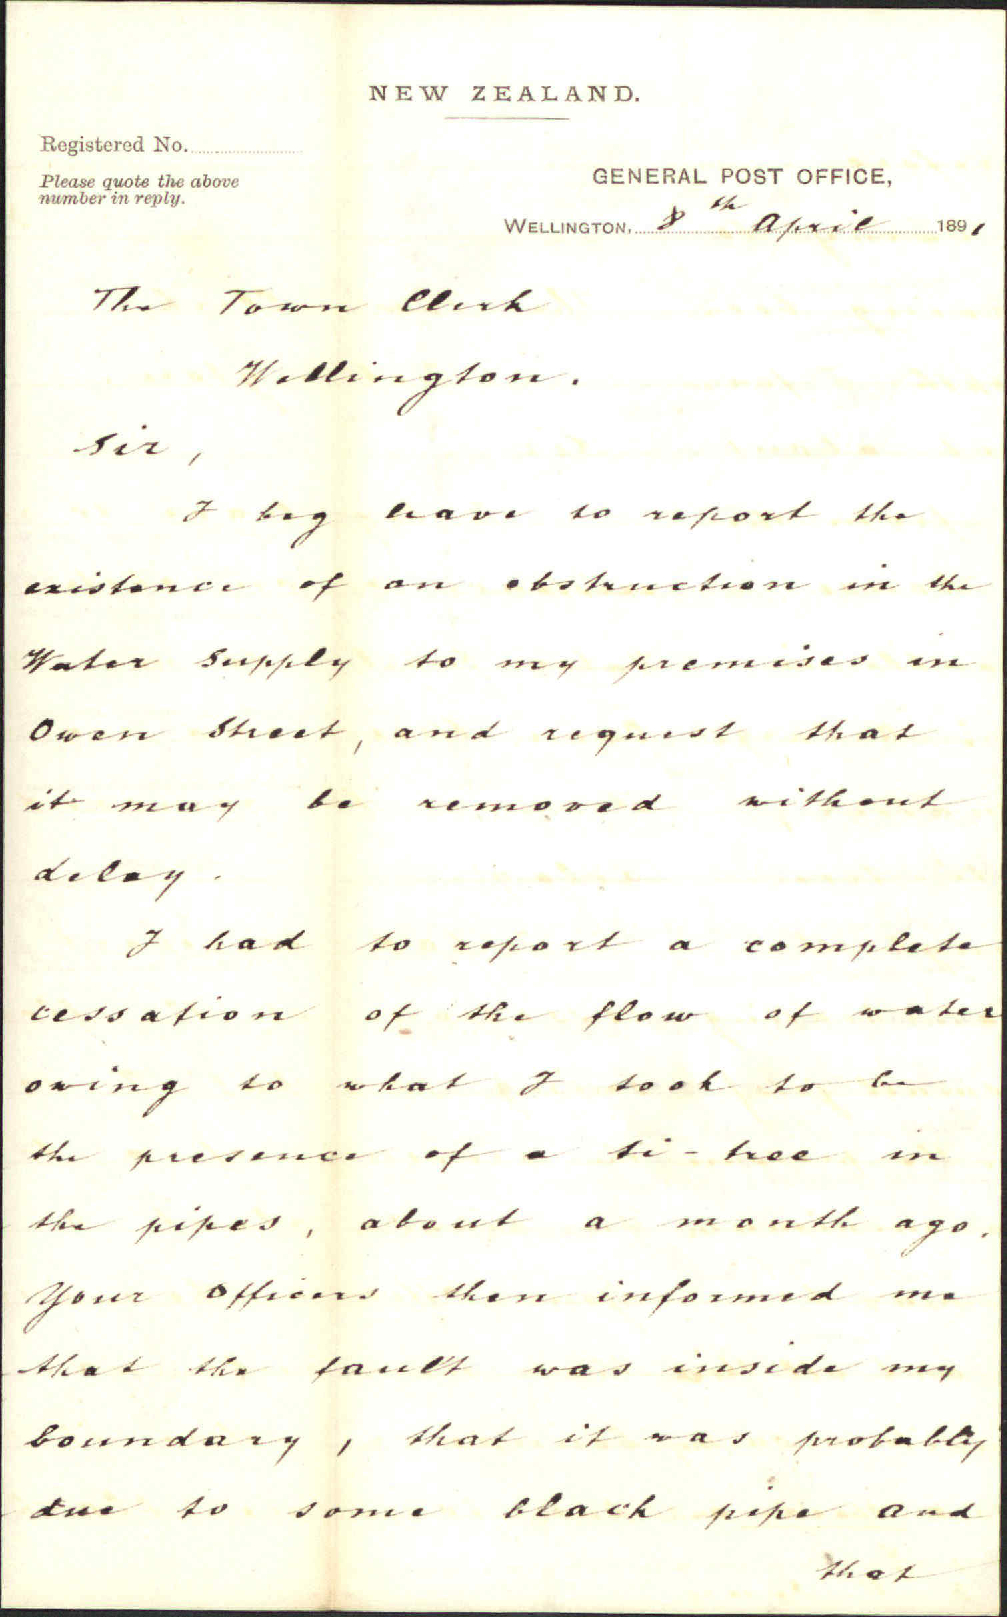 NEW ZEALAND.
Registered No.
Please quote the above
number in reply.
GENERAL POST OFFICE,
WELLINGTON, 8th April 1891
The Town Clerk
Wellington.
Sir,
I beg leave to report the
existence of an obstruction in the
Water Supply to my premises in
Owen Street, and request that
it may be removed without
delay.
I had to report a complete
cessation of the flow of water
owing to what I took to be
the presence of a ti-tree in
the pipes, about a month ago.
Your Officers then informed me
that the fault was inside my
boundary, that it was probably
due to some black pipe and
that